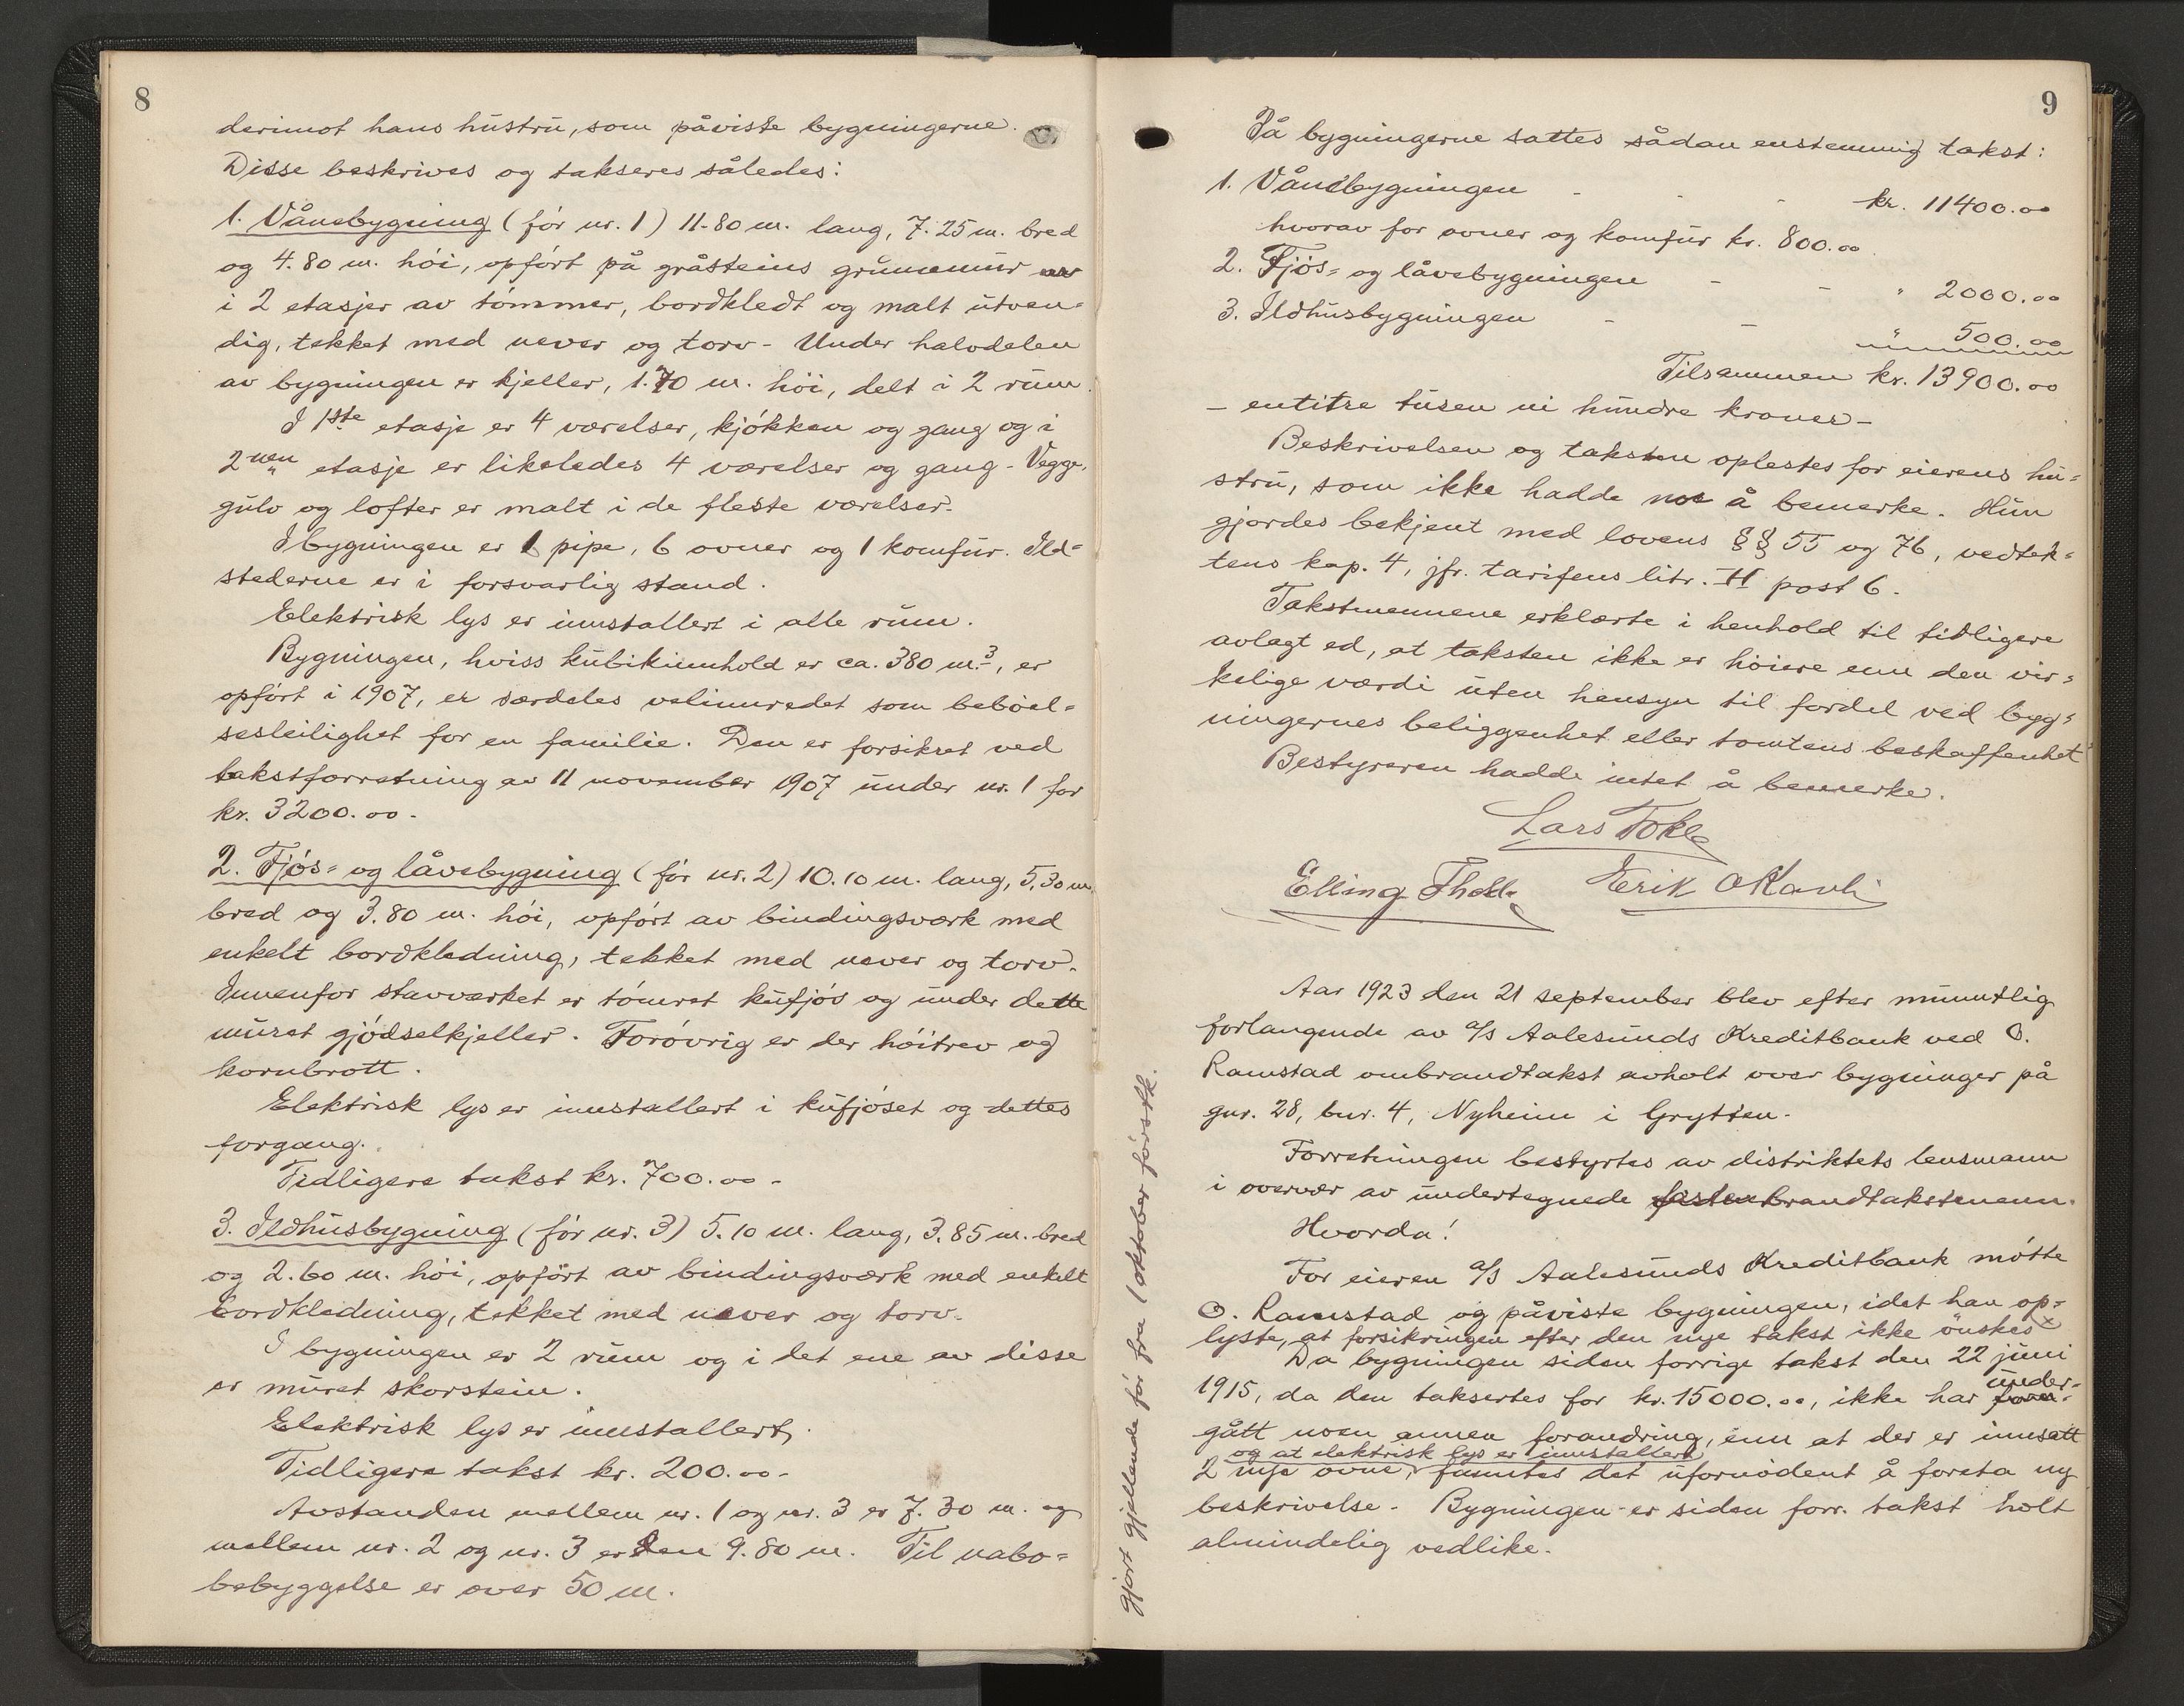 8
derimot hans hustru, som påviste bygningerne.
Disse beskrives og takseres således:
1. Vånebygning (før nr. 1) 11.80 m. lang, 7.25 m. bred
og 4.80 m. høi, opført på gråsteins grunnmur
i 2 etasjer av tømmer, bordkledt og malt utven=
dig, tekket med never og torv - Under halvdelen
av bygningen er kjeller, 1.70 m. høi, delt i 2 rum.
I 1ste etasje er 4 værelser, kjøkken og gang og i
2nen etasje er likeledes 4 værelser og gang - Vegge,
gulv og lofter er malt i de fleste værelser.
I bygningen er 1 pipe, 6 ovner og 1 komfur. Ild=
stederne er i forsvarlig stand.
Elektrisk lys er innstallert i alle rum.
Bygningen, hviss kubikinnhold er ca. 380 m.3, er
opført i 1907, er særdeles velinnredet som beboel=
sesleilighet for en familie. Den er forsikret ved
takstforretning av 11 november 1907 under nr. 1 for
kr. 3200.00.
2. Fjøs= og låvebygning (før nr. 2) 10.10 m. lang, 5.30 m.
bred og 3.80 m. høi, opført av bindingsværk med
enkelt bordkledning, tekket med never og torv.
Innenfor stavværket er tømret kufjøs og under dette
muret gjødselkjeller. Forøvrig er der høitrev og
kornbrott.
Elektrisk lys er innstallert i kufjøset og dettes
forgang.
Tidligere takst kr. 700.00 -
3. Ildhusbygning (før nr. 3) 5.10 m. lang, 3.85 m. bred
og 2.60 m. høi, opført av bindingsværk med enkelt
bordkledning, tekket med never og torv.
I bygningen er 2 rum og i det ene av disse
er muret skorstein.
Elektrisk lys er innstallert.
Tidligere takst kr. 200.00 -
Avstanden mellem nr. 1 og nr. 3 er 7.30 m. og
mellem nr. 2 og nr. 3 er den 9.80 m. Til nabo=
bebyggelse er over 50 m.
9
På bygningerne sattes sådan enstemmig takst:
1. Vånebygningen - - - kr. 11400.00
hvorav for ovner og komfur kr. 800.00
2. Fjøs= og låvebygningen - - " 2000.00
3. Ildhusbygningen - - " 500.00
Tilsammen kr. 13900.00
- entitre tusen ni hundre kroner -
Beskrivelsen og taksten oplestes for eierens hu=
stru, som ikke hadde noe å bemerke. Hun
gjordes bekjent med lovens §§ 55 og 76, vedtek=
tens kap. 4, jfr. tarifens litr. H post 6.
Takstmennene erklærte i henhold til tidligere
avlagt ed, at taksten ikke er høiere enn den vir=
kelige værdi uten hensyn til fordel ved byg=
ningernes beliggenhet eller tomtens beskaffenhet
Bestyreren hadde intet å bemerke.
Lars Tokle
Elling Erik
Aar 1923 den 21 september blev efter munntlig
forlangende av a/s Aalesunds Kreditbank ved O.
Ramstad ombrandtakst avholt over bygninger på
gnr. 28, bnr. 4, Nyheim i Grytten.
Forretningen bestyrtes av distriktets lensmann
i overvær av undertegnede faste brandtakstmenn.
Hvorda!
For eieren a/s Aalesunds Kreditbank møtte
O. Ramstad og påviste bygningen, idet han op=
lyste, at forsikringen efter den nye takst ikke ønskes x
Da bygningen siden forrige takst den 22 juni
1915, da den taksertes for kr. 15000.00, ikke har under=
gått noen annen forandring, enn at der er innsatt
2 nye ovne, og at elektrisk lys er innstallert funntes det ufornødent å foreta ny
beskrivelse. Bygningen er siden forr. takst holt
almindelig vedlike.
gjort gjellende før fra 1 oktober førstk.